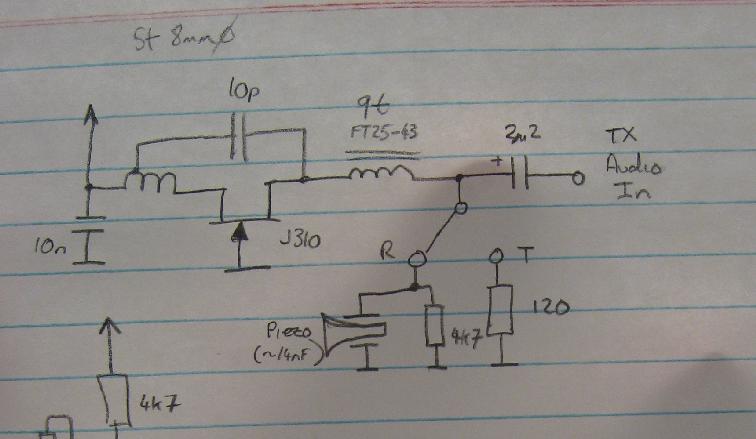 5t 8mmØ
10p
9t
FT25-43
2µ2
+
TX
Audio
In
10n
J310
R
T
Piezo
(~14nF)
4k7
120
4k7